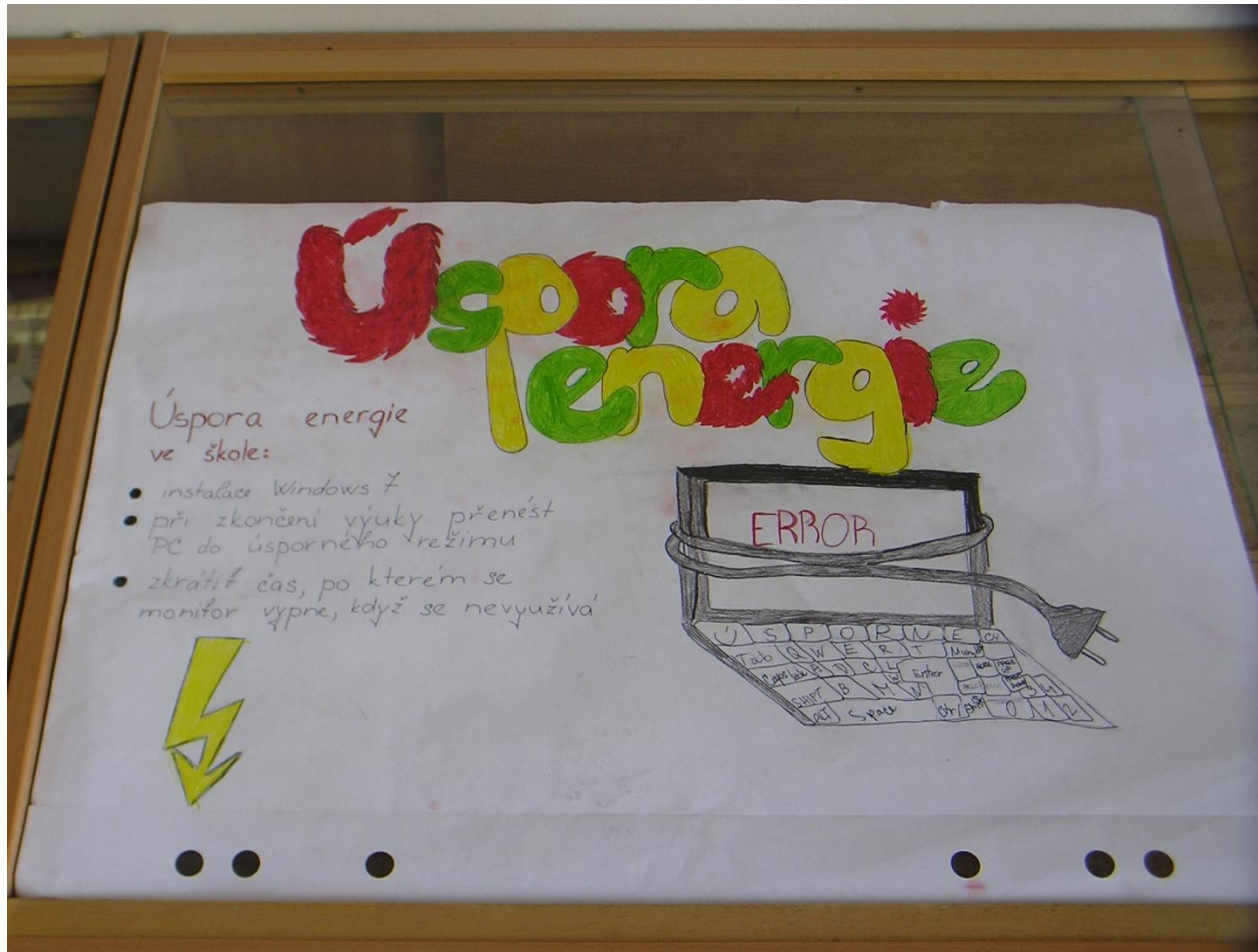 Úspora
energie
Úspora energie
ve škole:
instalace Windows 7
při zkončení výuky přenést
PC do úsporného režimu
zkrátit čas, po kterém se
monitor vypne, když se nevyužívá
ERROR
Ú S P O R N E
Tab Q W E R T
Caps lock A D C L Enter
SHIFT B M N
ALT Space Ctrl 0 1 2